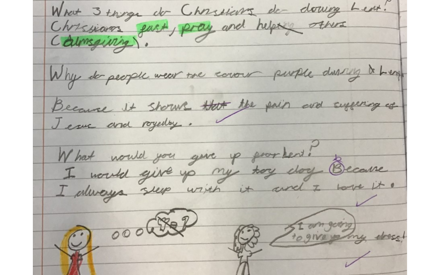 What 3 things do Christians do during Lent?
Christians fast, pray and help others
(almsgiving).
Why do people wear the colour purple during Lent
Because it shows the pain and suffering of
Jesus and royalty.
What would you give up for lent?
I would give up my toy dog Because
I always sleep with it and I love it.
I am going
to give up my